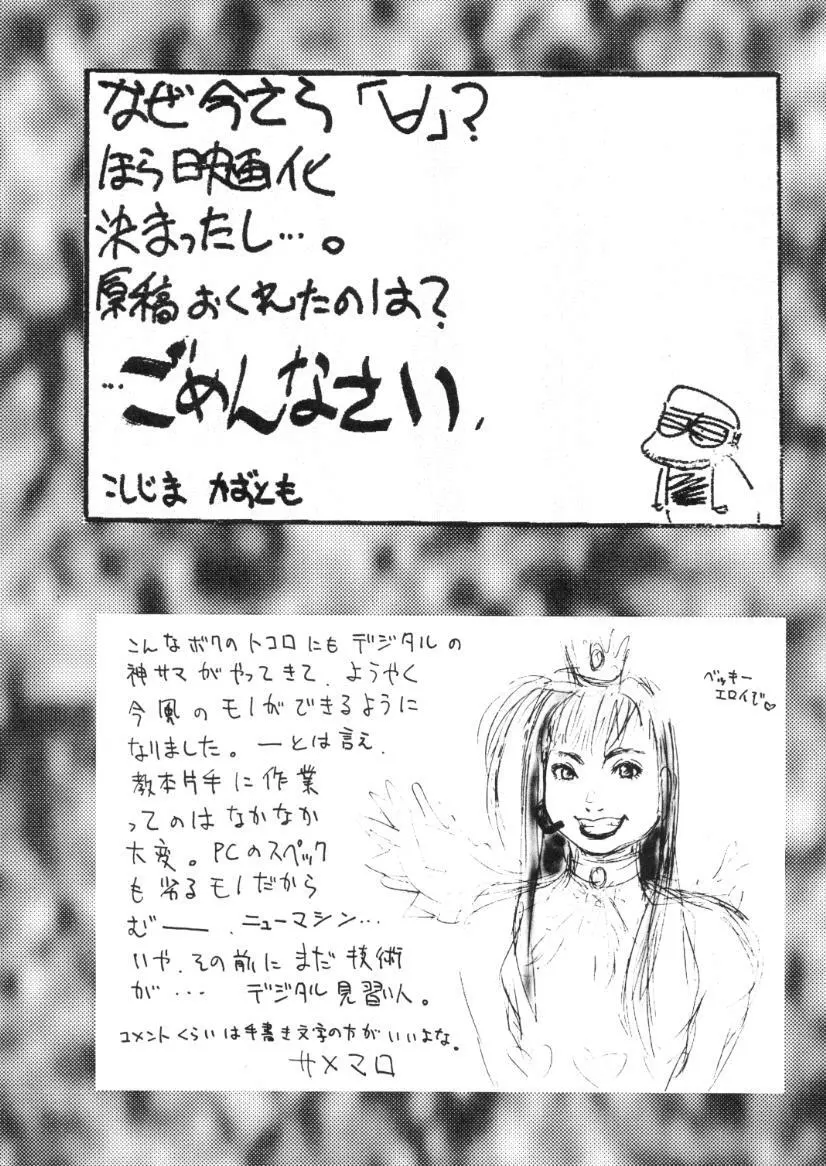 なぜ今さら「∀」?
ほら映画化
決まったし…。
原稿おくれたのは?
…ごめんなさい,
こしじま かずとも
こんなボクのトコロにもデジタルの
神サマがやってきて、ようやく
今風のモノができるように
なりました。ーとは言え、
教本片手に作業
ってのはなかなか
大変。PCのスペック
も劣るモノだから
むー。ニューマシン…
いや、その前にまだ技術
が… デジタル見習い人。
コメントくらいは手書き文字の方がいいよな。
サメマロ
ベッキー
エロイで♡